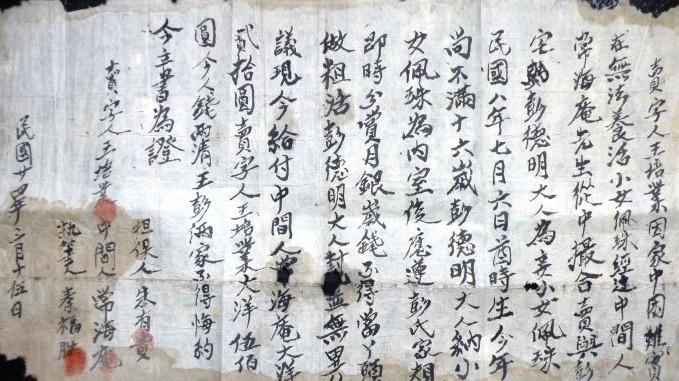 賣字人王培業因家中困難實
在無法養活小女佩珠經連中間人
常海庵先生從中撮合賣與彭
宅彭德明大人為妾小女佩珠
民國八年七月六日酉時生今年
尚不滿十六歲彭德明大人納小
女佩珠為內室後應連彭氏家相
即時分賞月銀歲錢不得當丫頭
做粗活彭德明大人對並無異
議現今給付中間人常海庵大洋
貳拾圓賣字人王培業大洋伍佰
圓今人錢兩清王彭兩家不得悔約
今立書為證
担保人 有貴
賣字人王培業 中間人常海庵
執筆 李福胜
民國廿四年三月十伍日